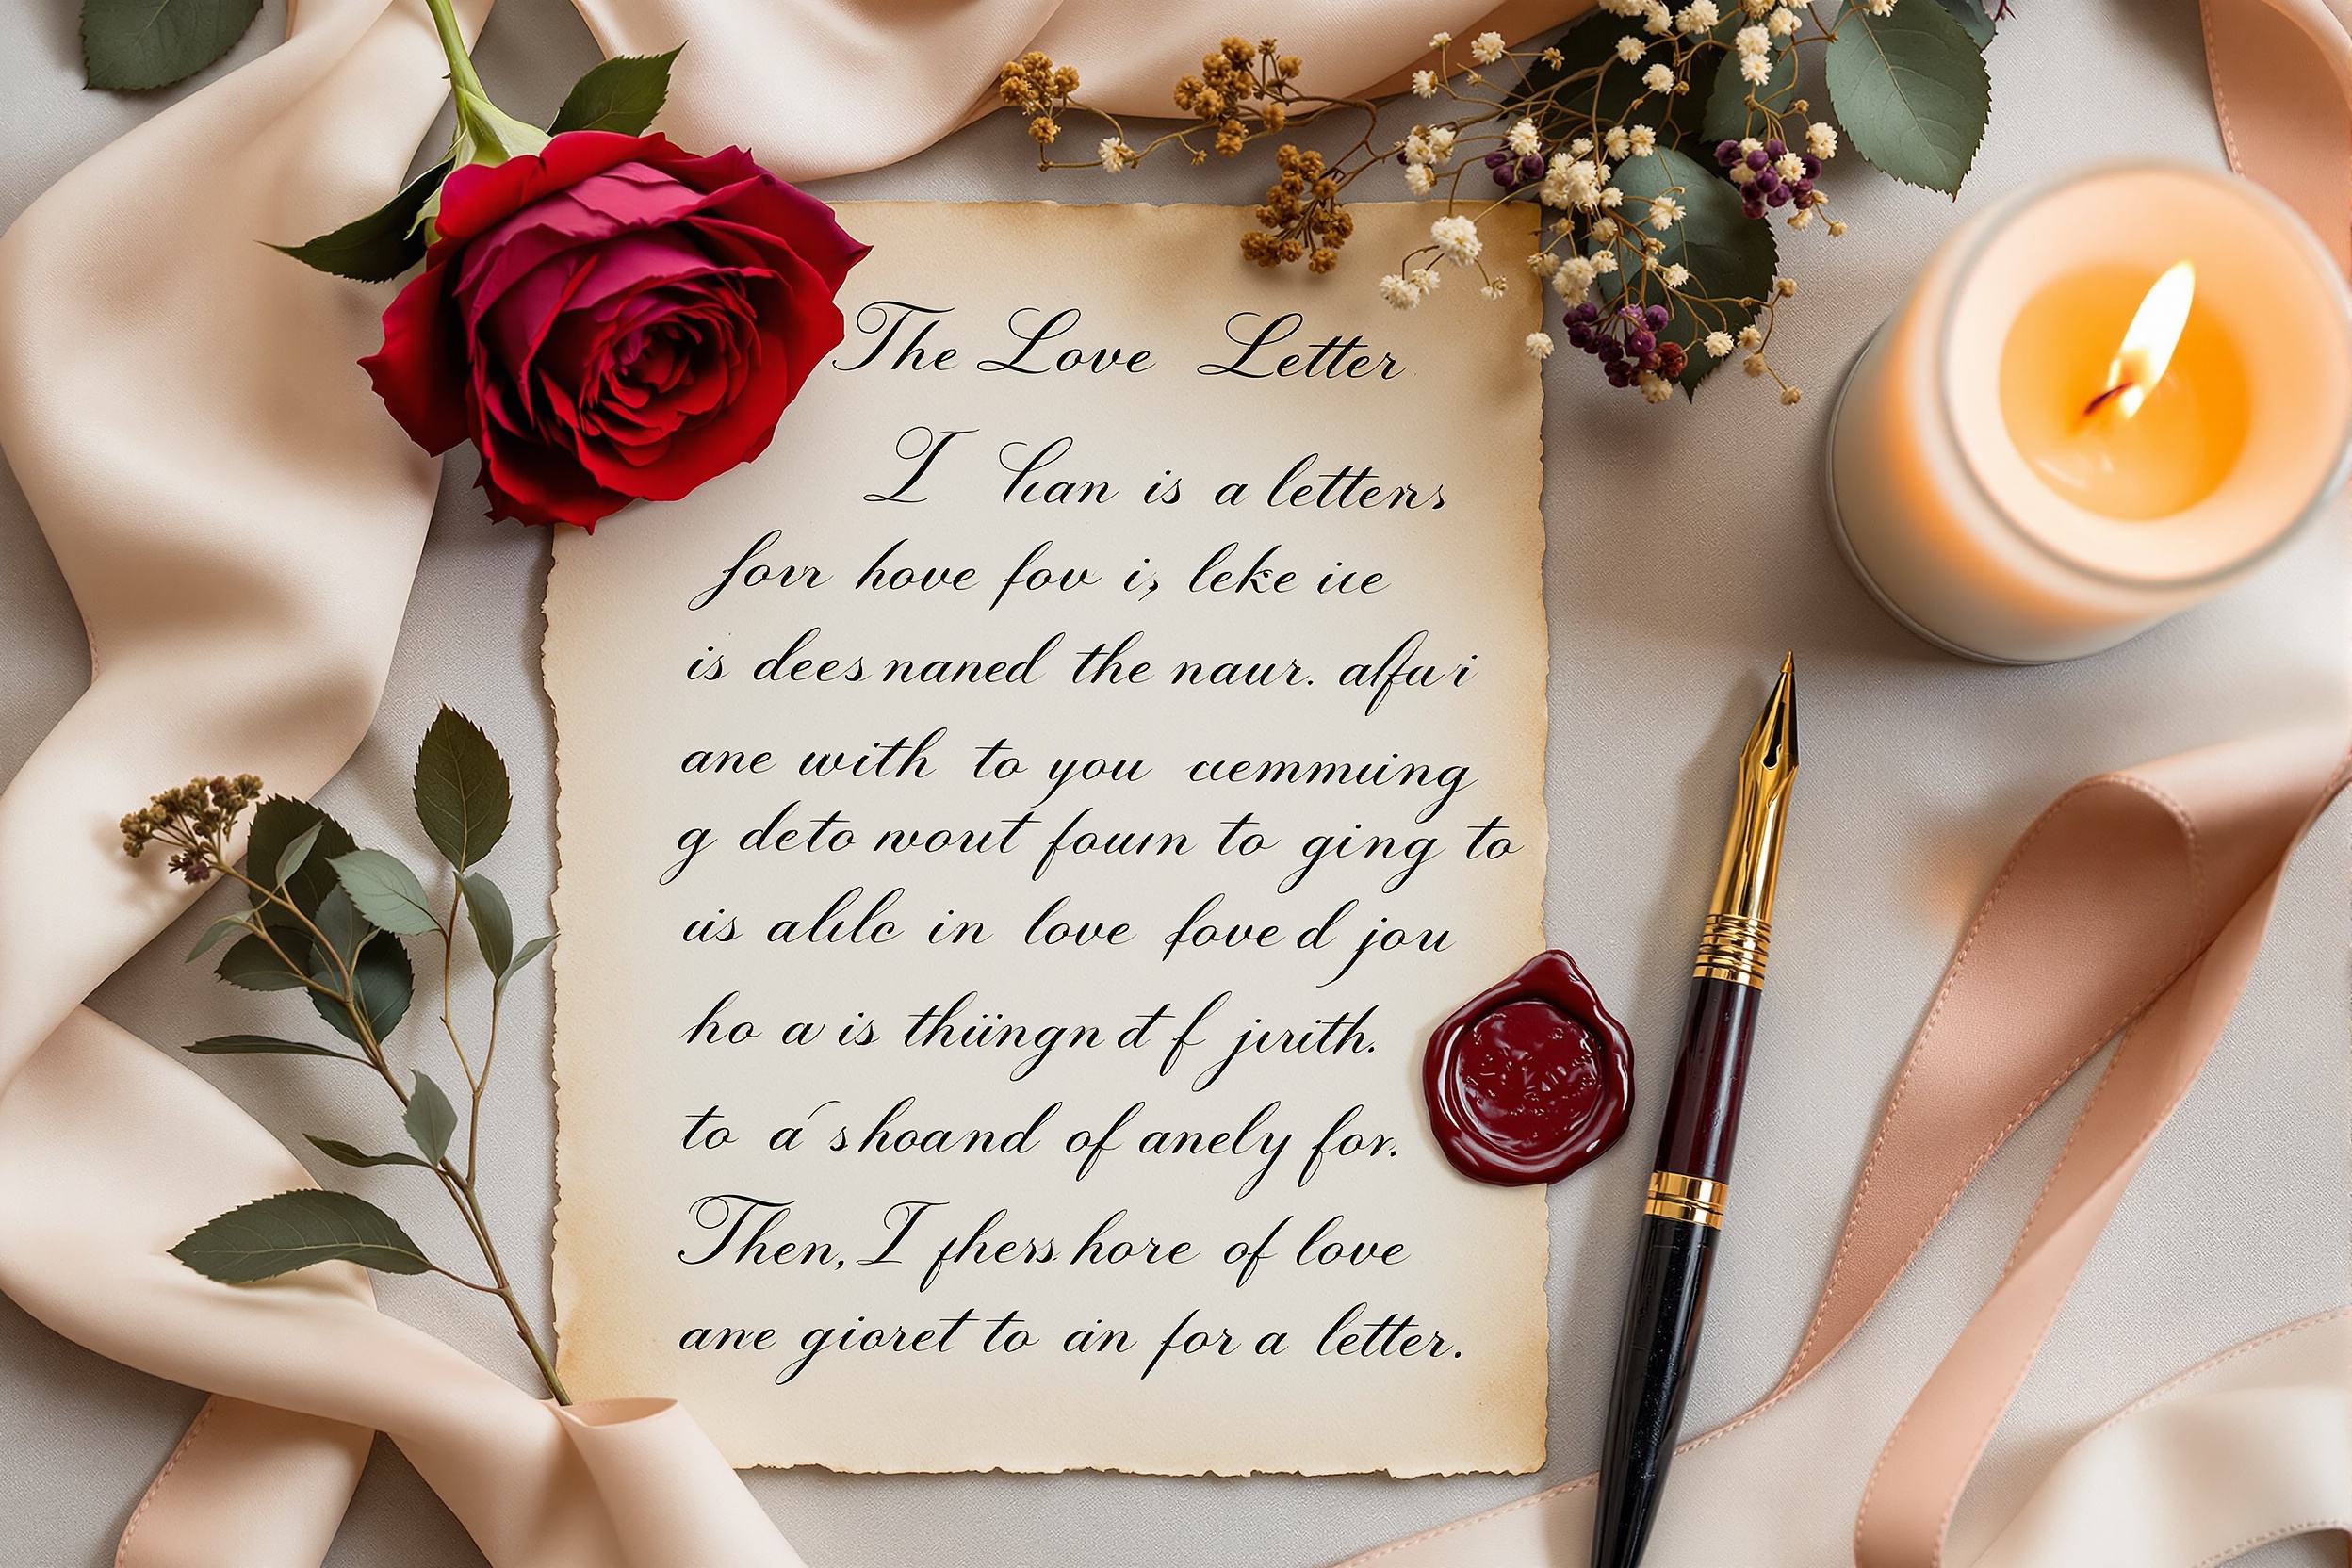 The Love Letter
I han is a letters
forr hove fov is, leke ice
is dees naned the naur. alfuri
ane with to you cemmuing
g deto wout foum to ging to
uis alilc in love foved jou
ho a is thiingnd f jirith.
to a shoand of anely for.
Then, I fhers hore of love
ane gioret to an for a letter.